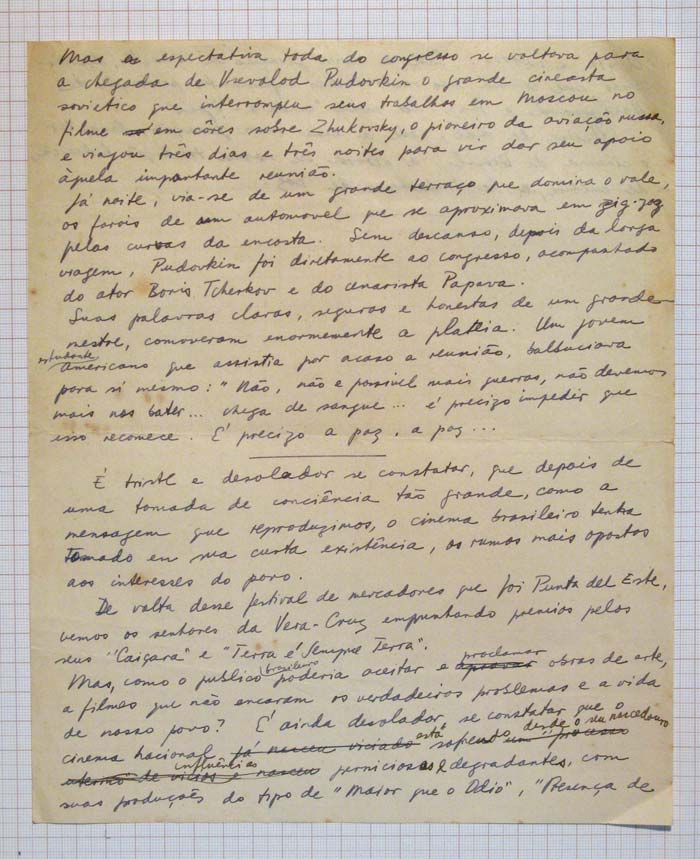 Mas a espectativa toda do congresso se voltava para
a chegada de Vsevolod Pudovkin o grande cineasta
sovietico que interrompeu seus trabalhos em Moscou no
filme em côres sobre Zhukovsky, o pioneiro da aviação russa,
e viajou três dias e três noites para vir dar seu apoio
àquela importante reunião.
Já noite, via-se de um grande terraço que domina o vale,
os farois de um automovel que se aproximava em zig-zag
pelas curvas da encosta. Sem descanso, depois da longa
viagem, Pudovkin foi diretamente ao congresso, acompanhado
do ator Boris Tcherkov e do cenarista Papava.
Suas palavras claras, seguras e honestas de um grande
mestre, comoveram enormemente a platéia. Um jovem
estudante
americano que assistia por acaso a reunião, balbuciava
para si mesmo: "Não, não e possivel mais guerras, não devemos
mais nos bater... chega de sangue... é precizo impedir que
isso recomece. É precizo a paz, a paz...
É triste e desolador se constatar, que depois de
uma tomada de conciência tão grande, como a
mensagem que reproduzimos, o cinema brasileiro tenha
tomado em sua curta existência, os rumos mais opostos
aos interesses do povo.
De volta desse festival de mercadores que foi Punta del Este,
vemos os senhores da Vera-Cruz empunhando premios pelos
seus "Caiçara" e "Terra é Sempre Terra".
proclamar
Mas, como o publico brasileiro poderia aceitar e aprovar obras de arte,
a filmes que não encaram os verdadeiros problemas e a vida
de nosso povo? É ainda desolador, se constatar que o
está desde o seu nascedouro
cinema nacional já nasceu viciado sofrendo um processo
influências
de vicios e nasceu perniciosas e degradantes, com
suas produções do tipo de "Maior que o Odio", "Presença de